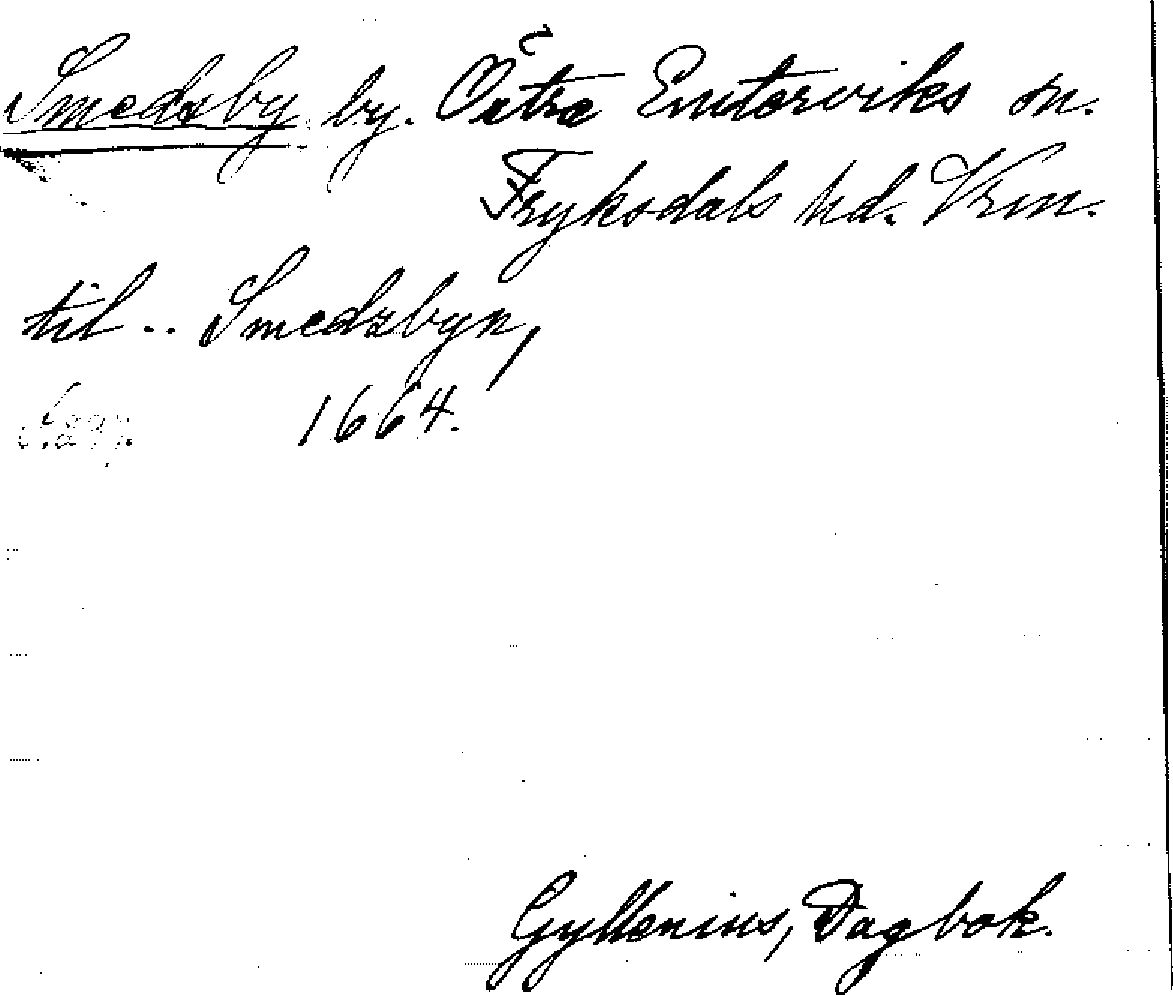 Smedsby by. Östra Emterviks sn.
Fryksdals hd. Vrm.
til .. Smedzbyn,
1664.
Gyllenius, Dagbok.